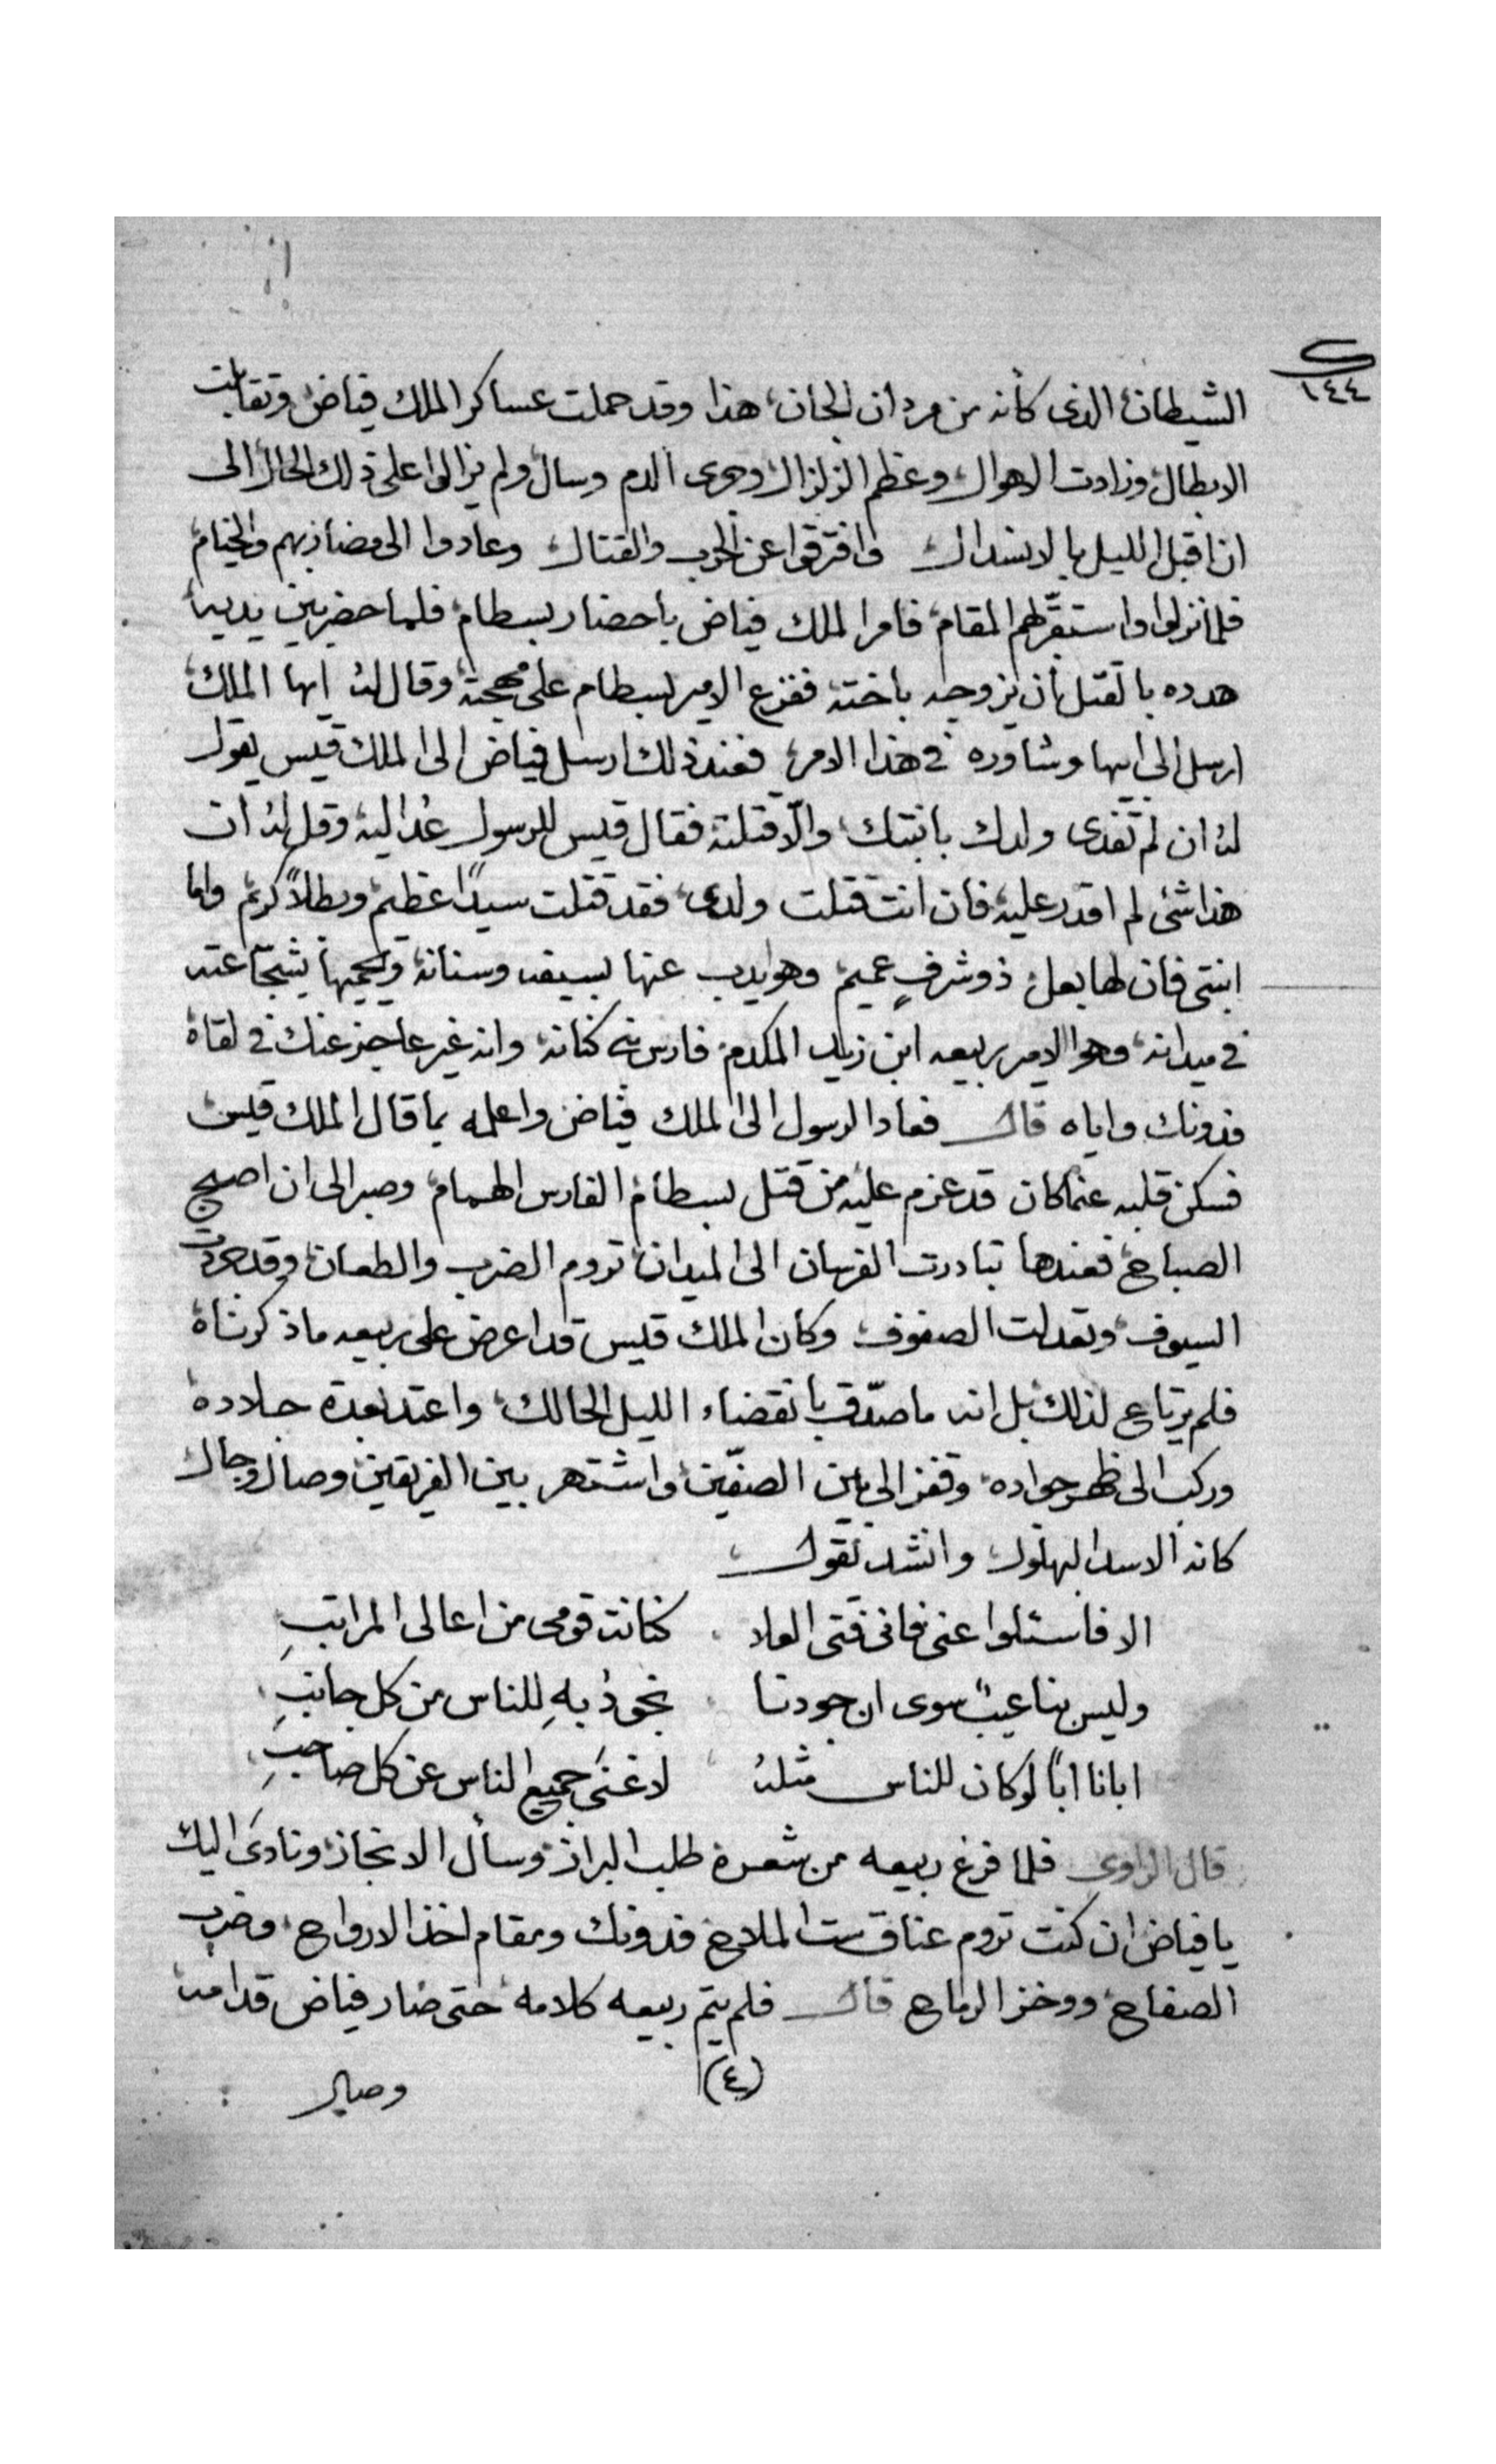 ١٤٤
الشيطان الذى كأنه من مردان الجان، هذا وقد حملت عساكر الملك فياض وتقابلت
الابطال وزادت الاهوال وعظم الزلزال وجرى الدم وسال ولم يزالوا على ذلك الحال الى
ان اقبل الليل بالانسدال وافترقوا عن الحرب والقتال وعادوا الى مضاربهم والخيام
فلما نزلوا واستقر بهم المقام فامر الملك فياض باحضار بسطام فلما حضر بين يديه
هدده بالقتل أن يزوجه باخته ففزع الامير بسطام على مهجته وقال له ايها الملك
ارسل الى ابيها وشاوره في هذا الامر، فعند ذلك ارسل فياض الى الملك قيس يقول
له ان لم تفدى ولدك بابنتك والّا قتلته فقال قيس للرسول عُد اليه وقل له ان
هذا شئ لم اقدر عليه فان انت قتلت ولدى فقد قتلت سيدًا عظيم وبطلاً كريم واما
ابنتى فان لها بعل ذو شرفٍ عميم وهو يدب عنها بسيفه وسنانه ويحميها بشجاعته
في ميدانه وهو الامير ربيعه ابن زيد المكدم فارس بنى كنانة وانه غير عاجز عنك في لقاه
فدونك واياه قال فعاد الرسول الى الملك فياض واعلمه بما قال الملك قيس
فسكن قلبه عما كان قد عزم عليه من قتل بسطام الفارس الهمام وصبر الى ان اصبح
الصباح فعندها تبادرت الفرسان الى الميدان تروم الضرب والطعان وقد جردت
السيوف وتعدلت الصفوف وكان الملك قيس قد اعرض على ربيعه ما ذكرناه
فلم يرتاع لذلك بل انه ما صدّق بانقضاء الليل الحالك واعتد بعدة جلاده
وركب الى ظهر جواده وقفز الى بين الصفّين واشتهر بين الفريقين وصال وجال
كانه الاسد البهلول وانشد يقول
الا فاسئلوا عنى فانى فتى العلا كنانة قومى من اعالى المراتبِ
وليس بنا عيبٌ سوى ان جودنا نجودُ بهِ للناس من كل جانبِ
ابانا ابًا لو كان للناس مثلهُ لاغنى جميع الناس عن كل صاحبِ
قال الراوى فلما فرغ ربيعه من شعره طلب البراز وسأل الانجاز ونادى اليك
يا فياض ان كنت تروم عناق ست الملاح فدونك ومقام اخذ الارواح وضرب
الصفاح ووخز الرماح قال فلم يتم ربيعه كلامه حتى صار فياض قدامه
(٤)
وصال